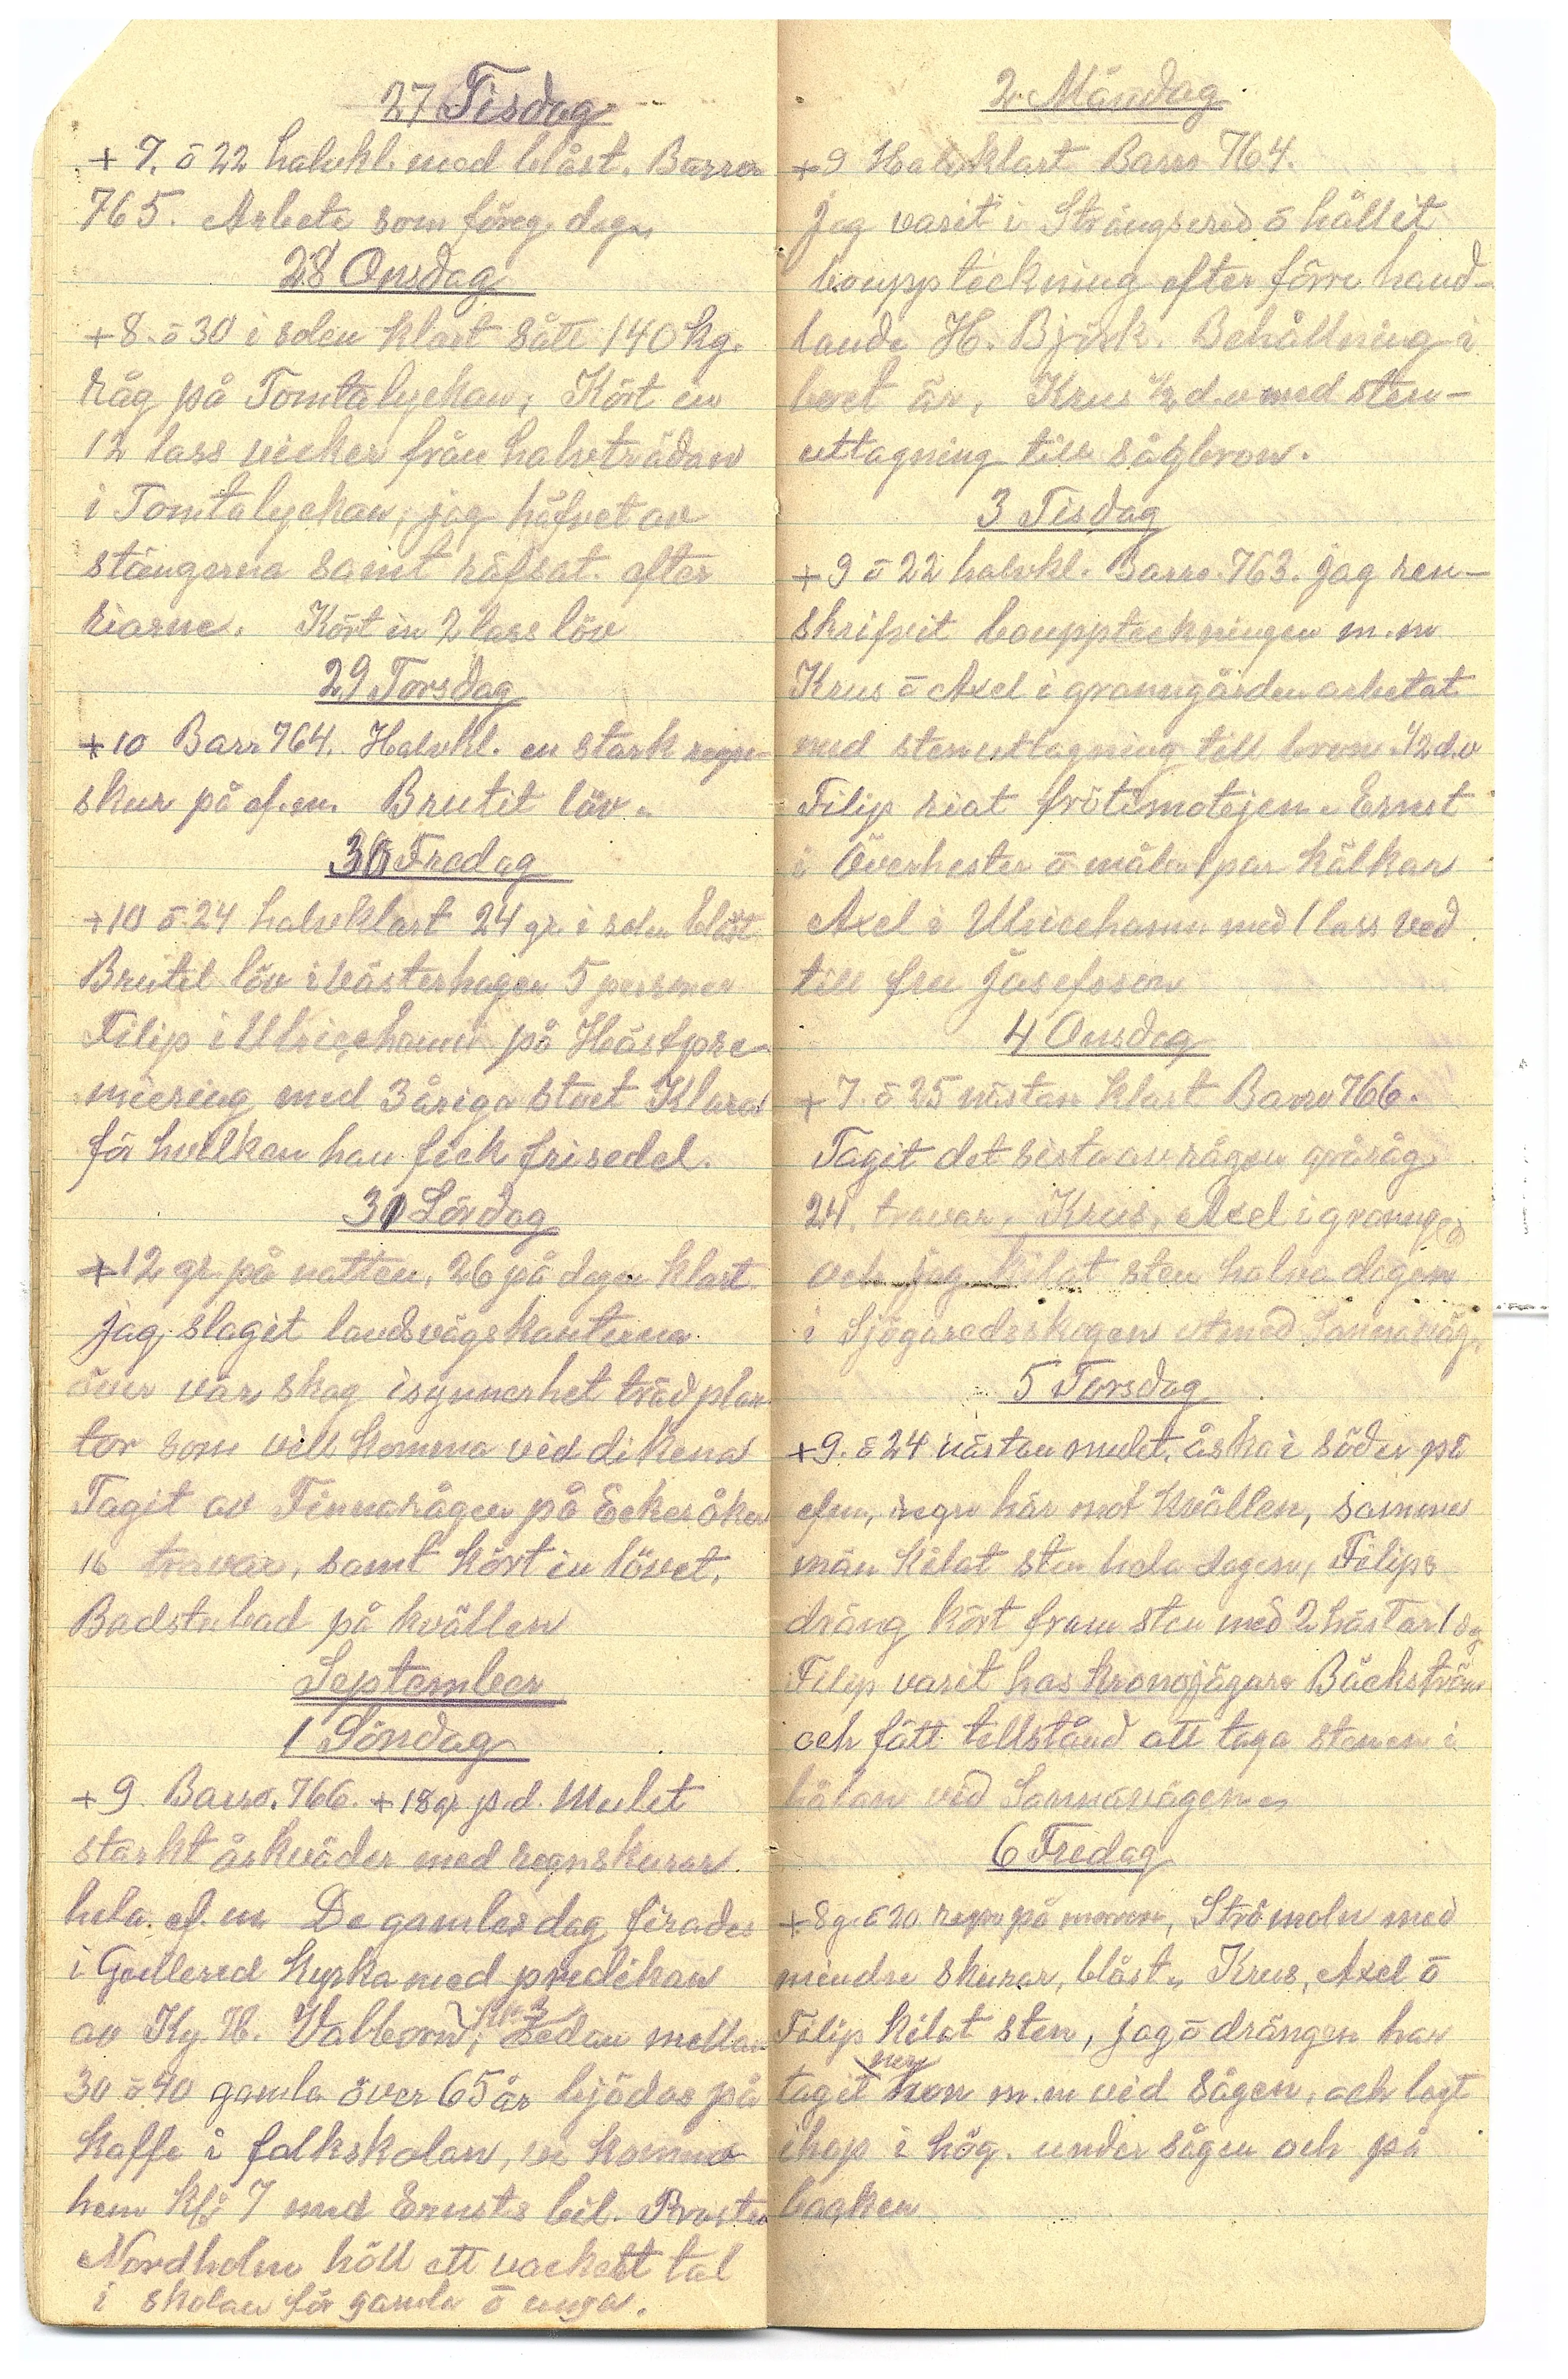 27 Tisdag
+ 7. ō 22 halvkl. med blåst. Barro
765. Arbete som föreg. dag.
28 Onsdag
+8. ō 30 i solen klart sått 140 kg.
råg på Tomtalyckan, Kört in
12 lass vicker från halvträdan
i Tomtalyckan, jag häfvet av
stängerna samt räfsat efter
riarne. Kört in 2 lass löv
29 Torsdag
+10 Barr 764. Halvkl. en stark regn-
skur på ef.m. Brutit löv.
30 Fredag
+10 ō 24 halvklart 24 gr. i solen blåst
Brutit löv i Västerhagen 5 personer
Filip i Ulricehamn på Hästpre-
miering med 3åriga stoet Klara
för hvilken han fick frisedel.
31 Lördag
+12 gr. på natten, 26 på dagen klart
jag slagit landsvägskanterna
över vår skog isynnerhet trädplan
tor som vill komma vid dikena
Tagit av Finnarågen på Ekeråker
16 travar, samt kört in lövet.
Badstubad på kvällen
September
1 Söndag
+9 Barro. 766. +18 gr. p.d. Mulet
starkt åskväder med regnskurar
hela ef.m De gamles dag firades
i Gällered kyrka med predikan
av Ky. H. Valborn, Sedan mellan
30 ō 40 gamla över 65 år bjödos på
kaffe i folkskolan, vi kommo
hem kl. 7 med Ernsts bil. Prosten
Nordholm höll ett vackert tal
i skolan för gamla ō unga.
2 Måndag
+9 Halvklart Barro 764.
Jag varit i Strängsered ō hållit
bouppteckning efter förre hand-
lande H. Björk. Behållning i
boet är, Krus ½ d.v med sten-
uttagning till sågbron.
3 Tisdag
+9 ō 22 halvkl. Barro. 763. jag ren-
skrifvit bouppteckningen m.m
Krus ō Axel i granngården arbetat
med stenuttagning till bron ½ d.v
Filip riat frötimotejen. Ernst
i Överhester ō måla 1 par kälkar
Axel i Ulricehamn med 1 lass ved
till fru Josefsson
4 Onsdag
+ 7. ō 25 nästan klart Barro 766.
Tagit det sista av rågen gråråg
24. travar, Krus, Axel i granng.
och jag kilat sten halva dagen
i Sjögaredsskogen utmed Sannaväg.
5 Torsdag
+9. ō 24 nästan mulet, åska i söder på
efm, regn här mot kvällen, samma
män kilat sten hela dagen, Filips
dräng kört fram sten med 2 hästar 1 dg
Filip varit hos kronojägare Bäckström
och fått tillstånd att taga stenen i
hålan vid Sannavägen
6 Fredag
+8 g. ō 20. regn på morron, Strömoln med
mindre skurar, blåst. Krus, Axel ō
Filip kilat sten, jag ō drängen har
tagit ner m.m vid sågen, och lagt
ihop i hög. under sågen och på
backen